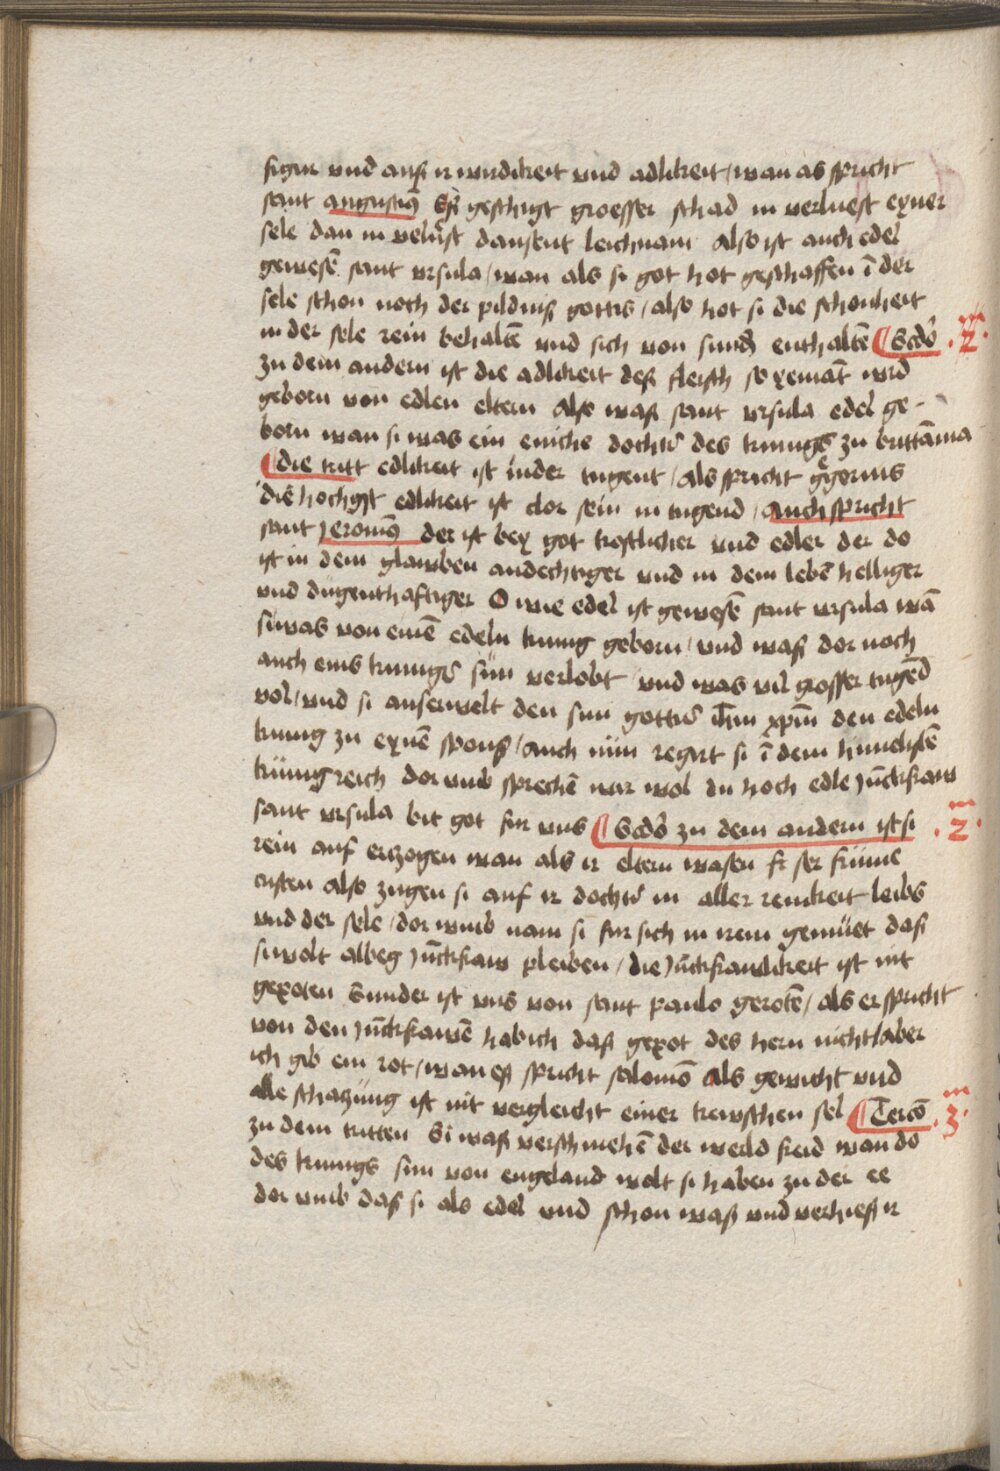 sigen vnd auß ir wirdikeit vnd adlikeit / wan als spricht
sant augustin9 Eß geschigt groesser schad in verluest eyner
sele dan in velust dausent leichnam Also ist auch edel
gewesē sant vrsula / wan als si got hot geschaffen ī der
sele schon noch der pildniß gottes / also hot si die schonheit
in der sele rein behaltē vnd sich von sundē enthaltē Scdo .2.
zu dem andern ist die adlikeit deß fleisch so yemāt wird
geborn von edlen eltern Also waß sant vrsula edel ge-
born wan si was ein eniche docht' des kunigs zu brittānia
die tritt edlikeit ist inder tugent / als spricht gregorius
die hochgst edlikeit ist clor sein in tugend / Auch spricht
sant Jeronim9 der ist bey got kostlicher vnd edler der do
ist in dem glawben andechtiger vnd in dem lebē helliger
vnd dugenthaftiger O wie edel ist gewesē sant vrsula wā
si was von einē edeln kunig geborn / vnd waß dor noch
auch eins kunigs sun verlobt vnd was vil grosser tugēd
vol / vnd si auserwelt den sun gottes ihm xpm den edeln
kunig zu eynē spons / Auch nun regirt si ī dem himelischē
kunigreich dor vmb sprechē wir wol du hoch edle Jūckfraw
sant vrsula bit got fur vns Scdo zu dem andern ist si .2.
rein auf erzogen wan als ir eltern wasen fr ser frume
cristen also zugen si auf ir docht' in aller renikeit leibs
vnd der sele / dor vmb nam si fur sich in irem gemuet daß
si wolt albeg Jūckfraw pleiben / die Jūckfrawlikeit ist nit
gepoten sunder ist vns von sant paulo gerotē / als er spricht
von den Jūckfrawē hab ich daß gepot des hern nicht / aber
ich gib ein rot / wan eß spricht salomō Als gewicht vnd
alle schatzung ist nit vergleicht einer kewschen sel Tercō .3.
zu dem tritten Si waß verschmehē der werld freid wan do
des kunigs sun von engeland wolt si haben zu der ee
dor vmb daß si als edel vnd schon waß vnd verhieß ir